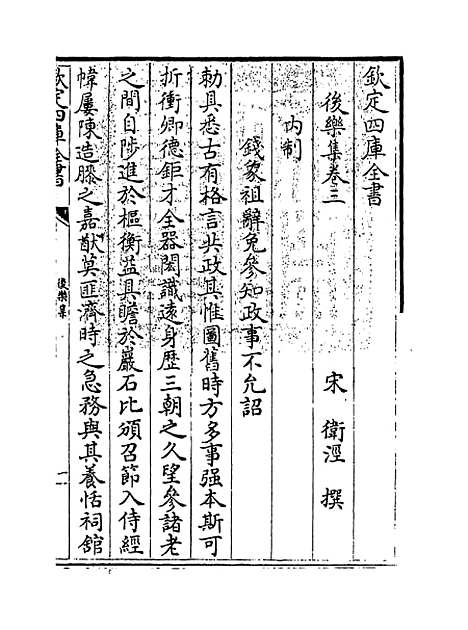 欽定四庫全書
後樂集卷三
宋 衛涇 撰
內制
錢象祖辭免參知政事不允詔
勅具悉古有格言共政其惟圖舊時方多事强本斯可
折衝卿德鉅才全器閎識遠身歷三朝之久望參諸老
之間自陟進於樞衡益具瞻於巖石比頒召節入侍經
幃屢陳造膝之嘉猷莫匪濟時之急務與其養恬祠舘
欽定四庫全書
後樂集
一